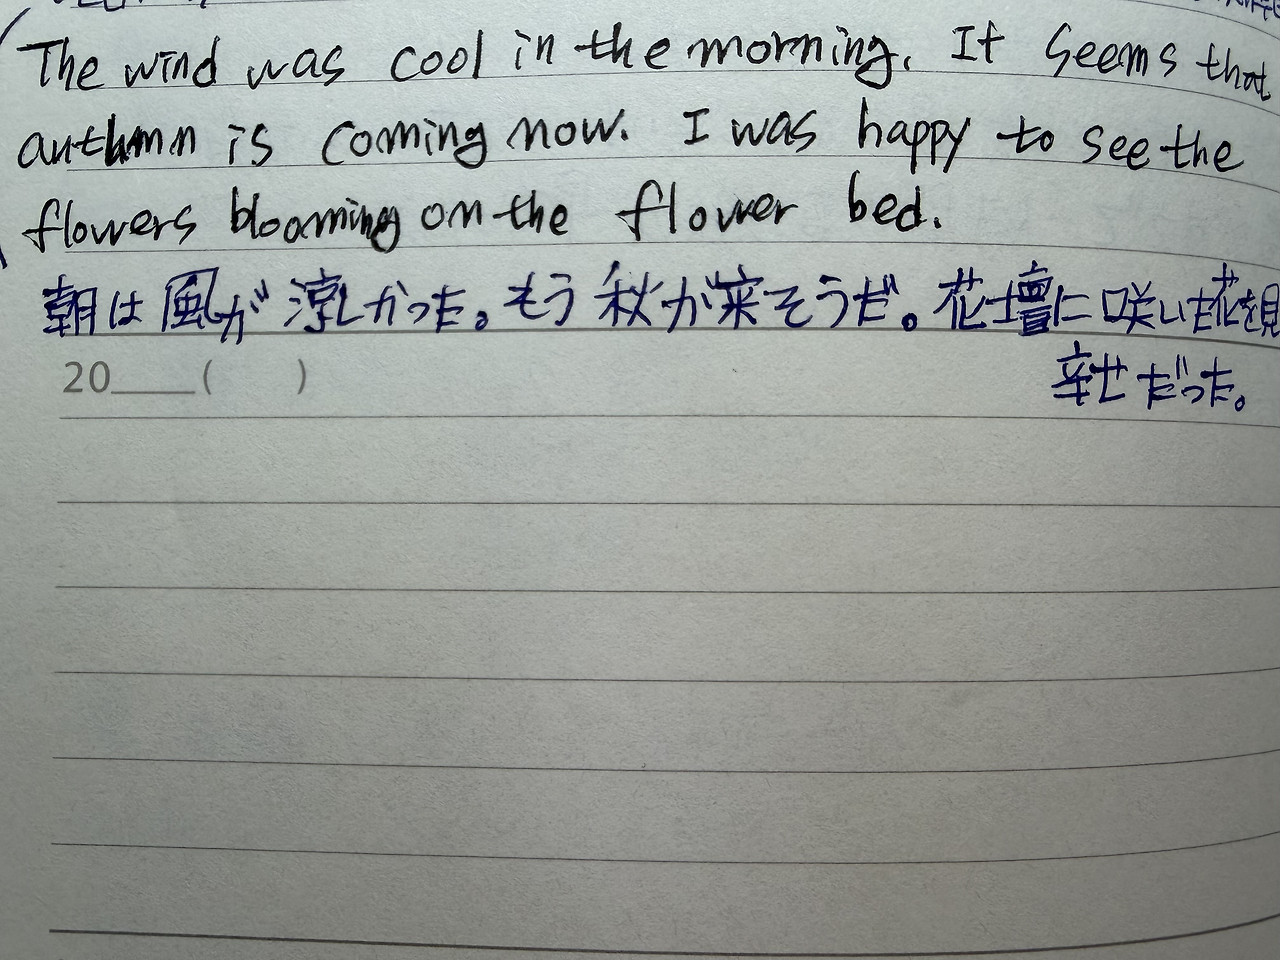 The wind was cool in the morning. It seems that
authmn is coming now. I was happy to see the
flowers blooming on the flower bed.
朝は風が涼しかった。もう秋が来そうだ。花壇に咲いた花を見
幸せだった。
20____(    )